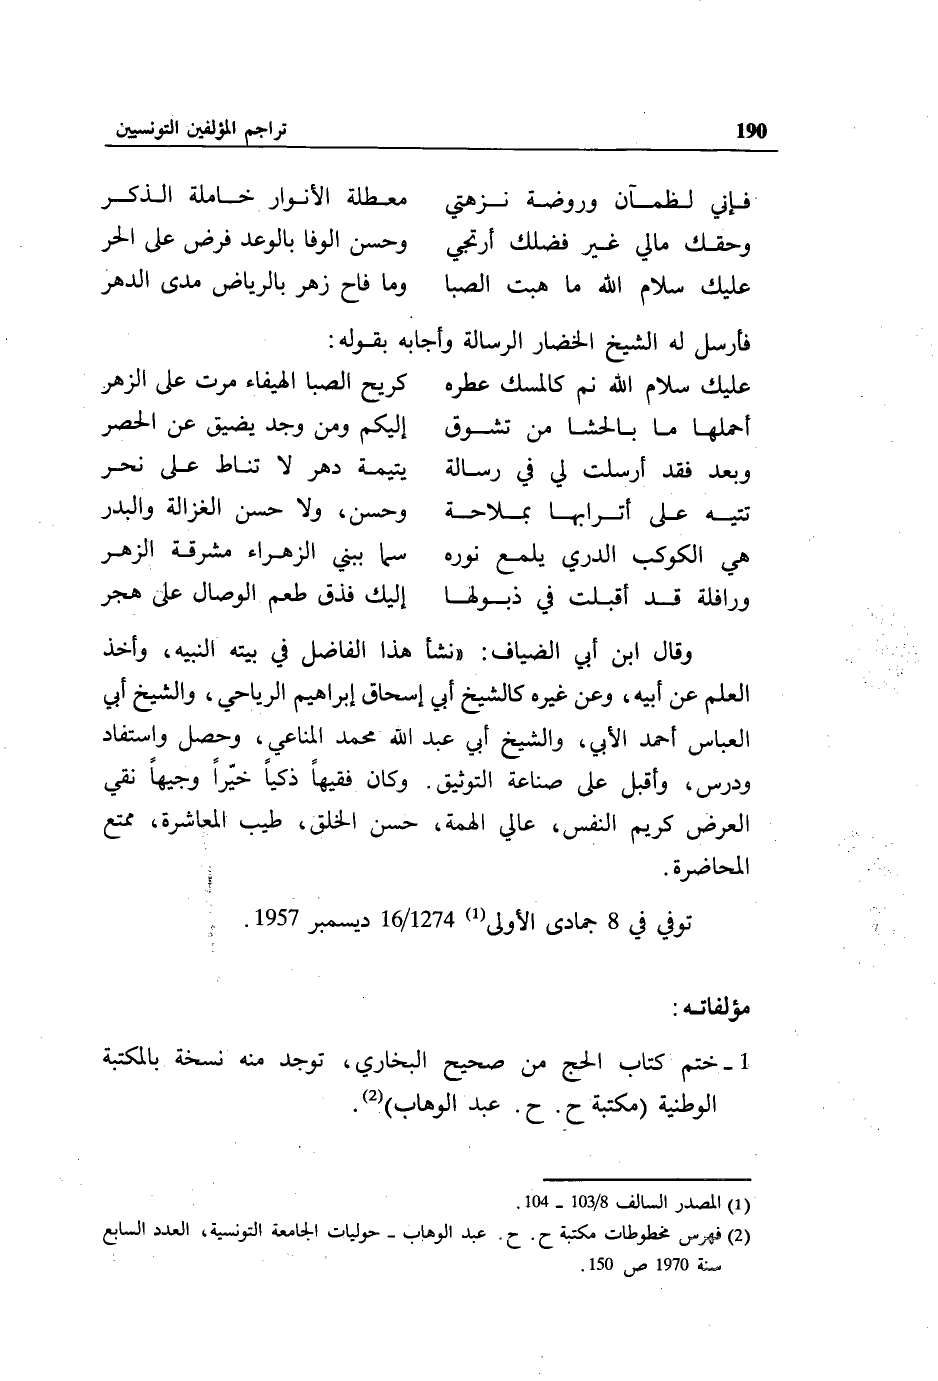 190
تراجم المؤلفين التونسيين
فإني لظمآن وروضة نزهتي معطلة الأنوار خاملة الذكر
وحقك مالي غير فضلك أرتجي وحسن الوفا بالوعد فرض على الحر
عليك سلام الله ما هبت الصبا وما فاح زهر بالرياض مدى الدهر
فأرسل له الشيخ الخضار الرسالة وأجابه بقوله:
عليك سلام الله نم كالمسك عطره كريح الصبا الهيفاء مرت على الزهر
أحملها ما بالحشا من تشوق إليكم ومن وجد يضيق عن الحصر
وبعد فقد أرسلت لي في رسالة يتيمة دهر لا تناط على نحر
تتيه على أترابها بملاحة وحسن، ولا حسن الغزالة والبدر
هي الكوكب الدري يلمع نوره سما ببني الزهراء مشرقة الزهر
ورافلة قد أقبلت في ذيولها إليك فذق طعم الوصال على هجر
وقال ابن أبي الضياف: «نشأ هذا الفاضل في بيته النبيه، وأخذ
العلم عن أبيه، وعن غيره كالشيخ أبي إسحاق إبراهيم الرياحي، والشيخ أبي
العباس أحمد الأبي، والشيخ أبي عبد الله محمد المناعي، وحصل واستفاد
ودرس، وأقبل على صناعة التوثيق. وكان فقيهاً ذكياً خيّراً وجيهاً نقي
العرض كريم النفس، عالي الهمة، حسن الخلق، طيب المعاشرة، ممتع
المحاضرة.
توفي في 8 جمادى الأولى(1) 16/1274 ديسمبر 1957.
مؤلفاته:
1 ـ ختم كتاب الحج من صحيح البخاري، توجد منه نسخة بالمكتبة
الوطنية (مكتبة ح. ح. عبد الوهاب)(2).
(1) المصدر السالف 103/8 ـ 104.
(2) فهرس مخطوطات مكتبة ح. ح. عبد الوهاب ـ حوليات الجامعة التونسية، العدد السابع
سنة 1970 ص 150.